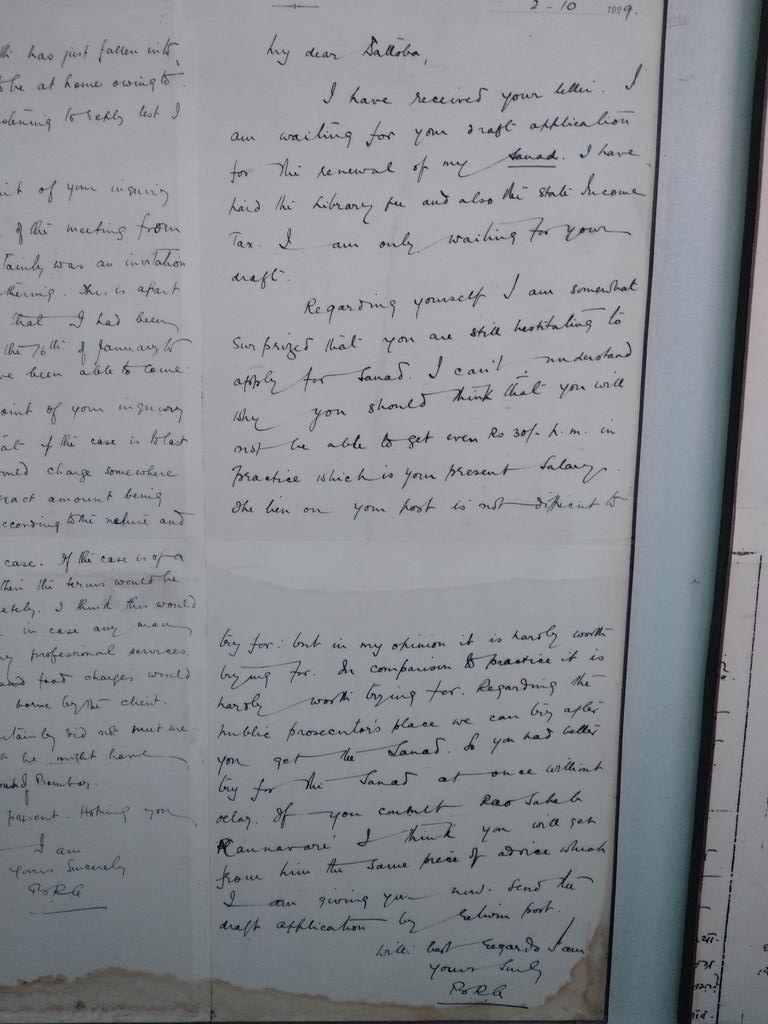 has just fallen with
be at home owing to
to reply lest I
of your inquiry
of the meeting from
tainly was an invitation
thering. This is apart
that I had been
the 26th of January to
ve been able to come
oint of your inquiry
at if the case is to last
ould change somewhere
xact amount being
ccording to the nature and
case. If the case is of a
then the terms would be
etely. I think this would
in case any many
professional services.
and food charges would
borne by the client.
rtainly did not meet me
he might have
of Bombay.
present. Hoping you
I am
Yours Sincerely
B.R.A
2-10 1929.
My dear Dattoba,
I have received your letter. I
am waiting for your draft application
for the renewal of my Sanad. I have
paid the Library fee and also the State Income
Tax. I am only waiting for your
draft.
Regarding yourself I am somewhat
surprized that you are still hestitating to
apply for Sanad. I can't understand
why you should think that you will
not be able to get even Rs 30/- p.m. in
practice which is your present Salary.
The lien on your post is not difficult to
try for: but in my opinion it is hardly worth
trying for. In comparison to practice it is
hardly worth trying for. Regarding the
public prosecutor's place we can try after
you get the Sanad. So you had better
try for the Sanad at once without
delay. If you consult Rao Saheb
I think you will get
from him the same piece of advice which
I am giving you now. Send the
draft application by return post.
With best regards I am
Yours Sincly
B.R.A